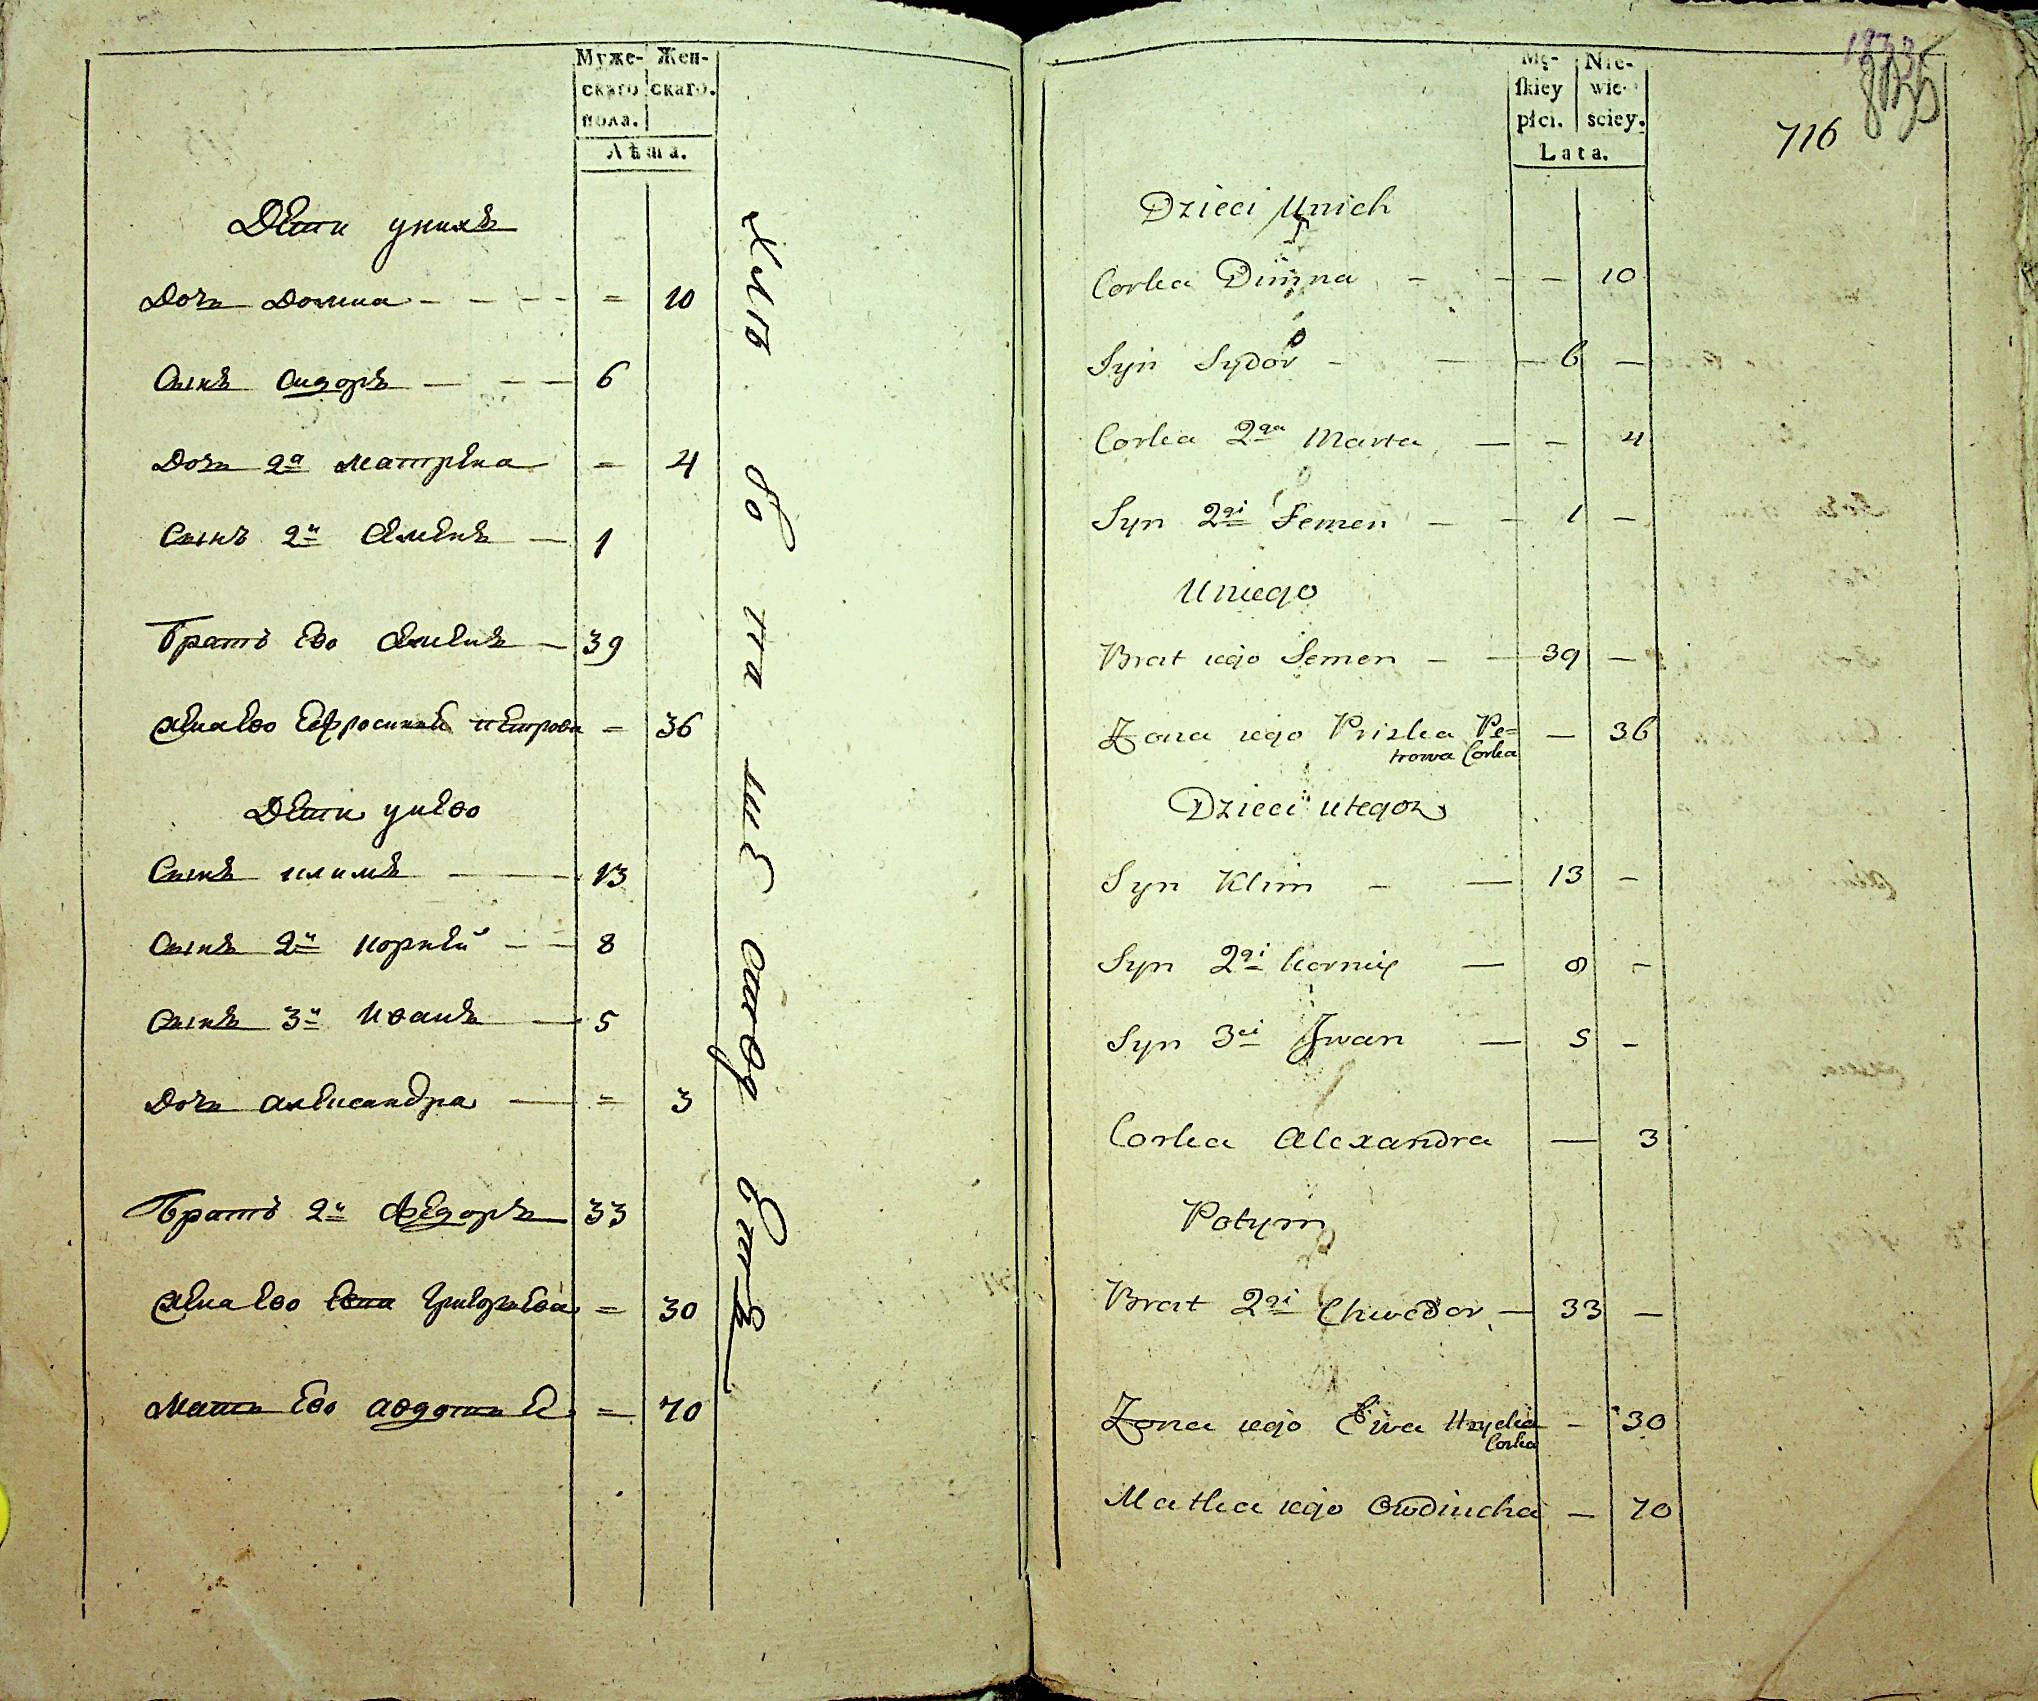 Муже- Жен-
скаго скаго.
пола.
Лѣта.
Дети униХъ
Дочь Домна - - - - = 10
Сынъ Сидоръ — - — 6
Дочь 2я Матрена = 4
Сынъ 2й Семенъ — 1
Братъ Ево Семенъ — 39
Жена Ево Ефросиния Петрова = 36
Дети унево
Сынъ Климъ — 13
Сынъ 2й Корней - - 8
Сынъ 3й Иванъ — 5
Дочь Александра — = 3
Братъ 2й Федоръ — 33
Жена Ево Ева Григорьева = 30
Мать Ево Авдотья = 70
Mę- Nie-
skiey wie-
płci. sciey.
Lata.
716
Dzieci Unich
Corka Dimna - - — 10
Syn Sydor - — — 6 —
Corka 2ga Marta — - 4
Syn 2gi Semen - - 1 —
Uniego
Brat iego Semen - — 39 —
Zona iego Priska Pe=
trowa Corka — 36
Dzieci utegoz
Syn Klim - — 13 -
Syn 2gi Korniy — 8 -
Syn 3ci Jwan — 5 -
Corka Alexandra — 3
Potym
Brat 2gi Chwedor — 33 —
Zona iego Ewa Hrycka
Corka - 30
Matka iego Owdiucha — 70